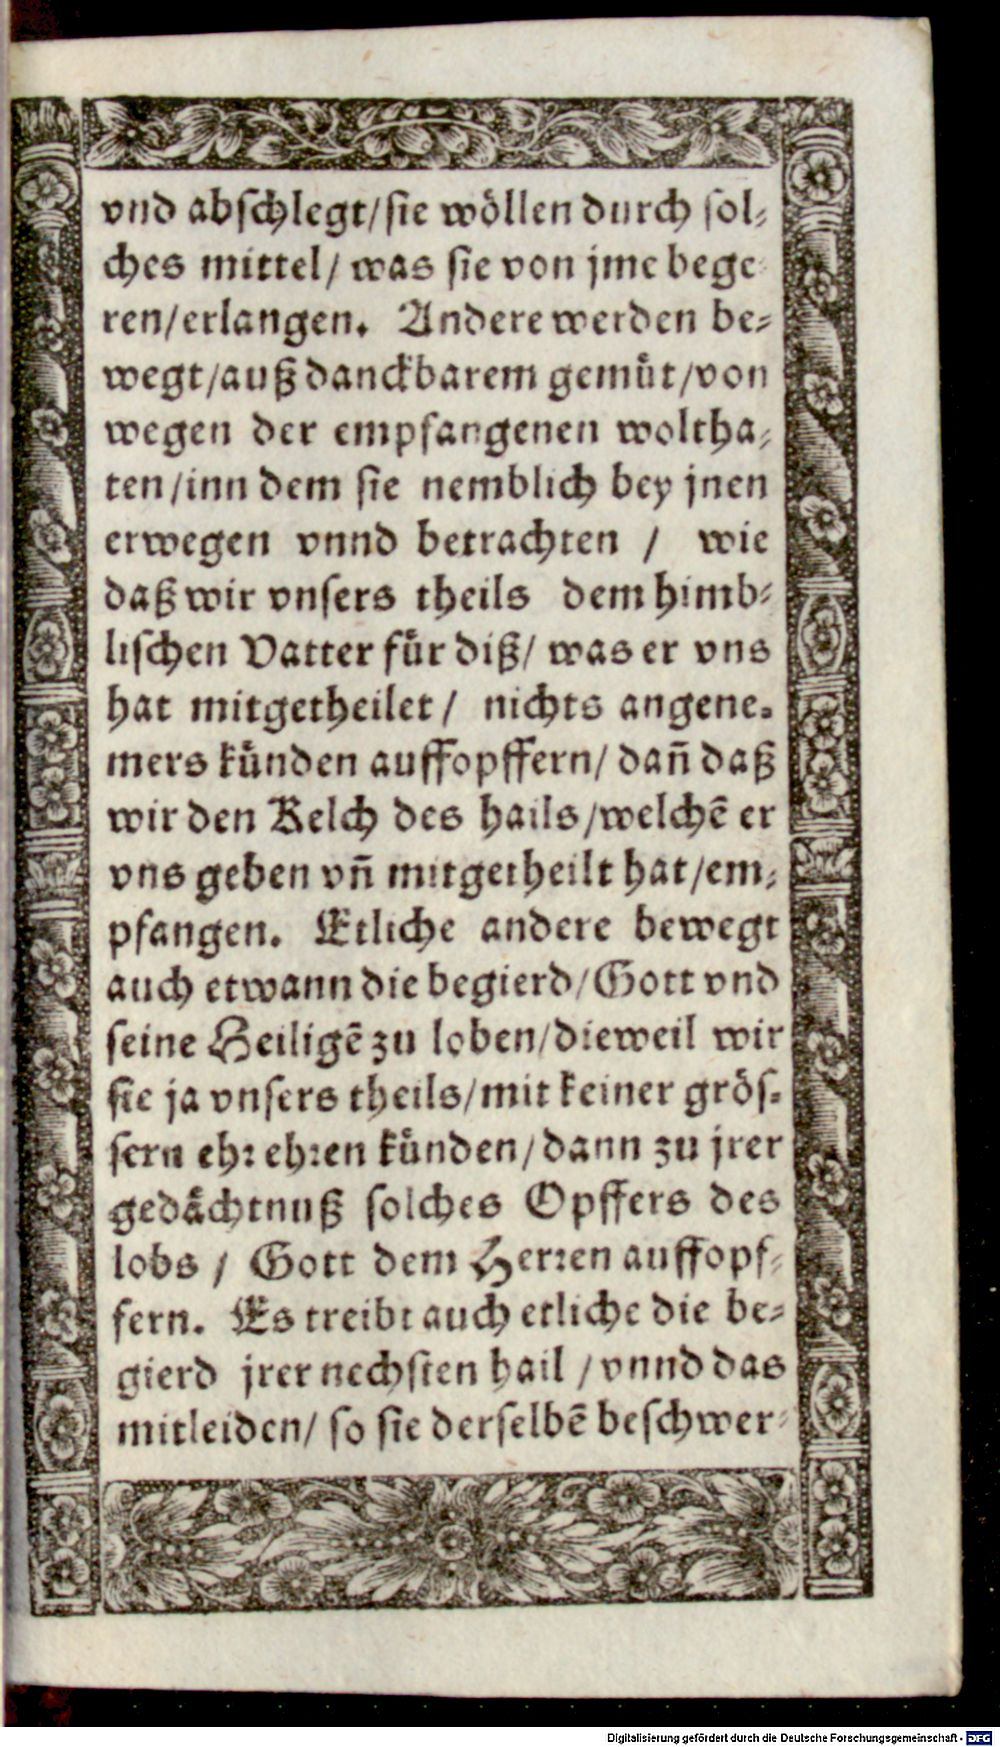 vnd abschlegt/ sie wöllen durch sol-
ches mittel/ was sie von jme bege
ren/erlangen. Andere werden be-
wegt/auß danckbarem gemüt/von
wegen der empfangenen woltha-
ten/inn dem sie nemblich bey jnen
erwegen vnnd betrachten / wie
daß wir vnsers theils dem himb-
lischen Vatter für diß/ was er vns
hat mitgetheilet/ nichts angene-
mers künden auffopffern/ dañ daß
wir den Kelch des hails/welchē er
vns geben vñ mitgetheilt hat/em-
pfangen. Etliche andere bewegt
auch etwann die begierd/Gott vnd
seine Heiligē zu loben/dieweil wir
sie ja vnsers theils/mit keiner grös-
sern ehr ehren künden/dann zu jrer
gedächtnuß solches Opffers des
lobs / Gott dem Herren auffopf-
fern. Es treibt auch etliche die be-
gierd jrer nechsten hail / vnnd das
mitleiden/ so sie derselbē beschwer-
Digitalisierung gefördert durch die Deutsche Forschungsgemeinschaft - DFG